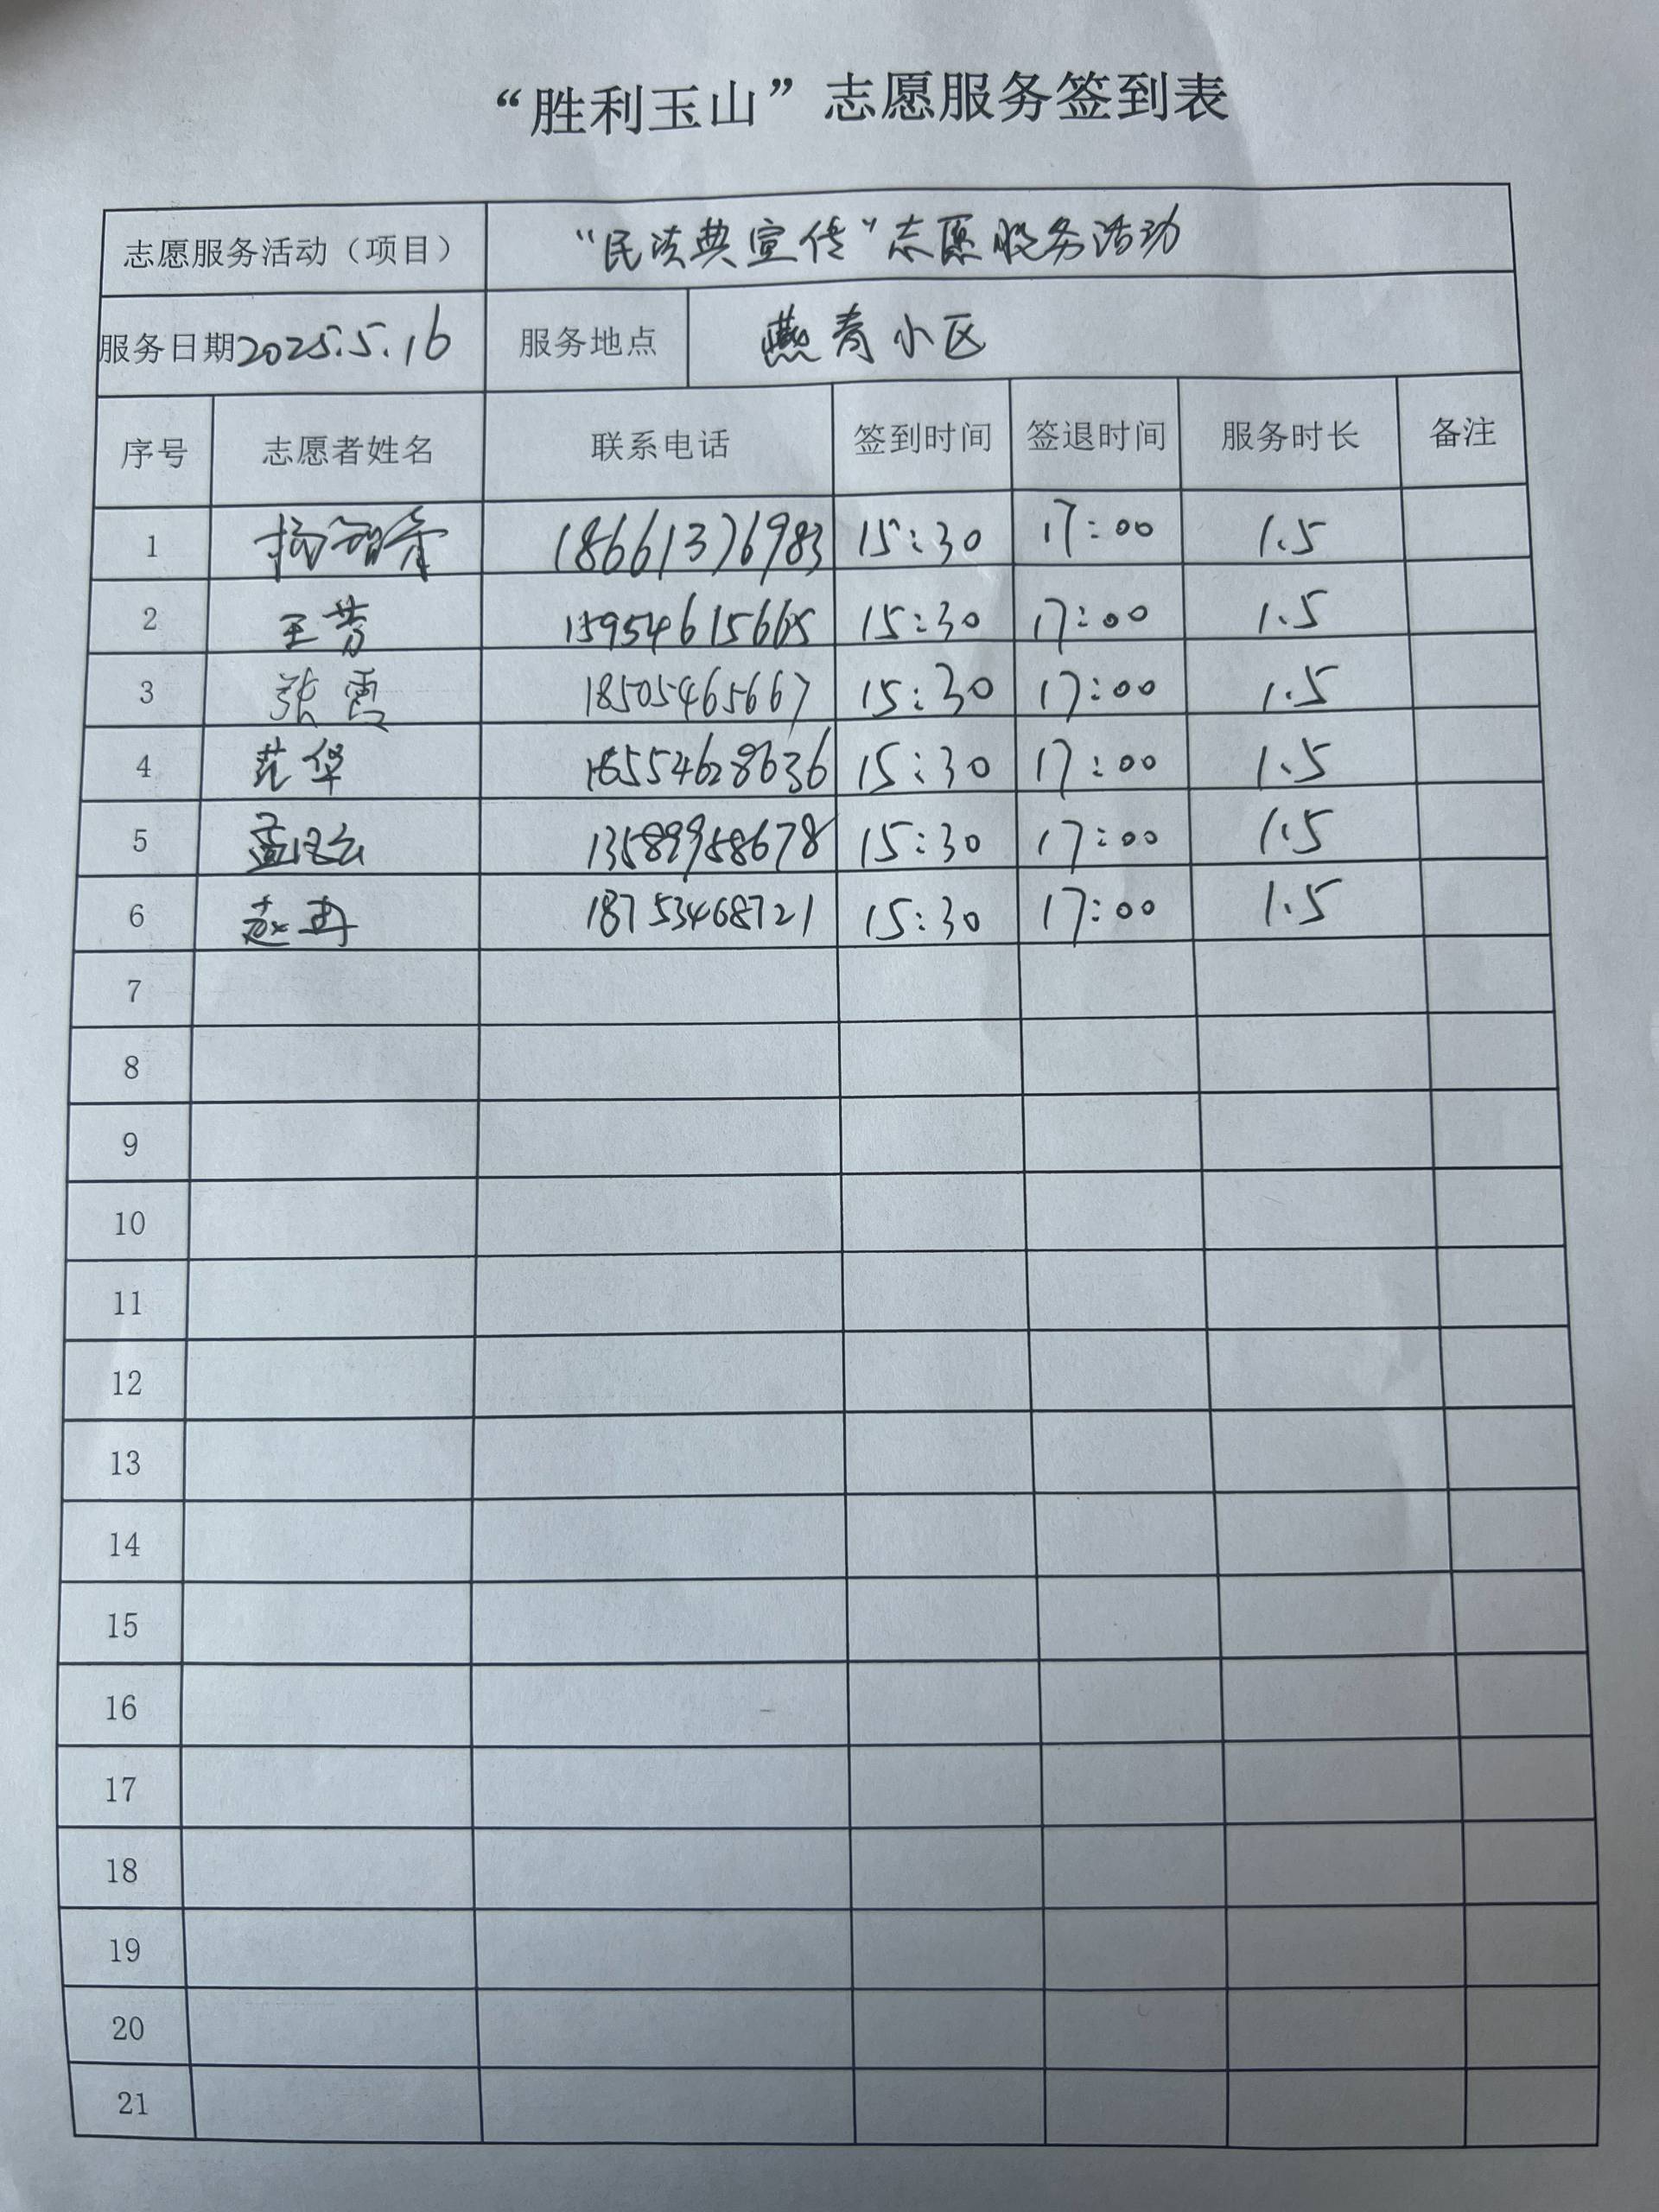 “胜利玉山”志愿服务签到表
志愿服务活动（项目） “民法典宣传”志愿服务活动
服务日期2025.5.16 服务地点 燕青小区
序号 志愿者姓名 联系电话 签到时间 签退时间 服务时长 备注
1 杨 18661376983 15:30 17:00 1.5
2 王芳 15954615665 15:30 17:00 1.5
3 张霞 18505465667 15:30 17:00 1.5
4 范华 18554628636 15:30 17:00 1.5
5 孟 13589958678 15:30 17:00 1.5
6 赵冉 18753468721 15:30 17:00 1.5
7
8
9
10
11
12
13
14
15
16
17
18
19
20
21